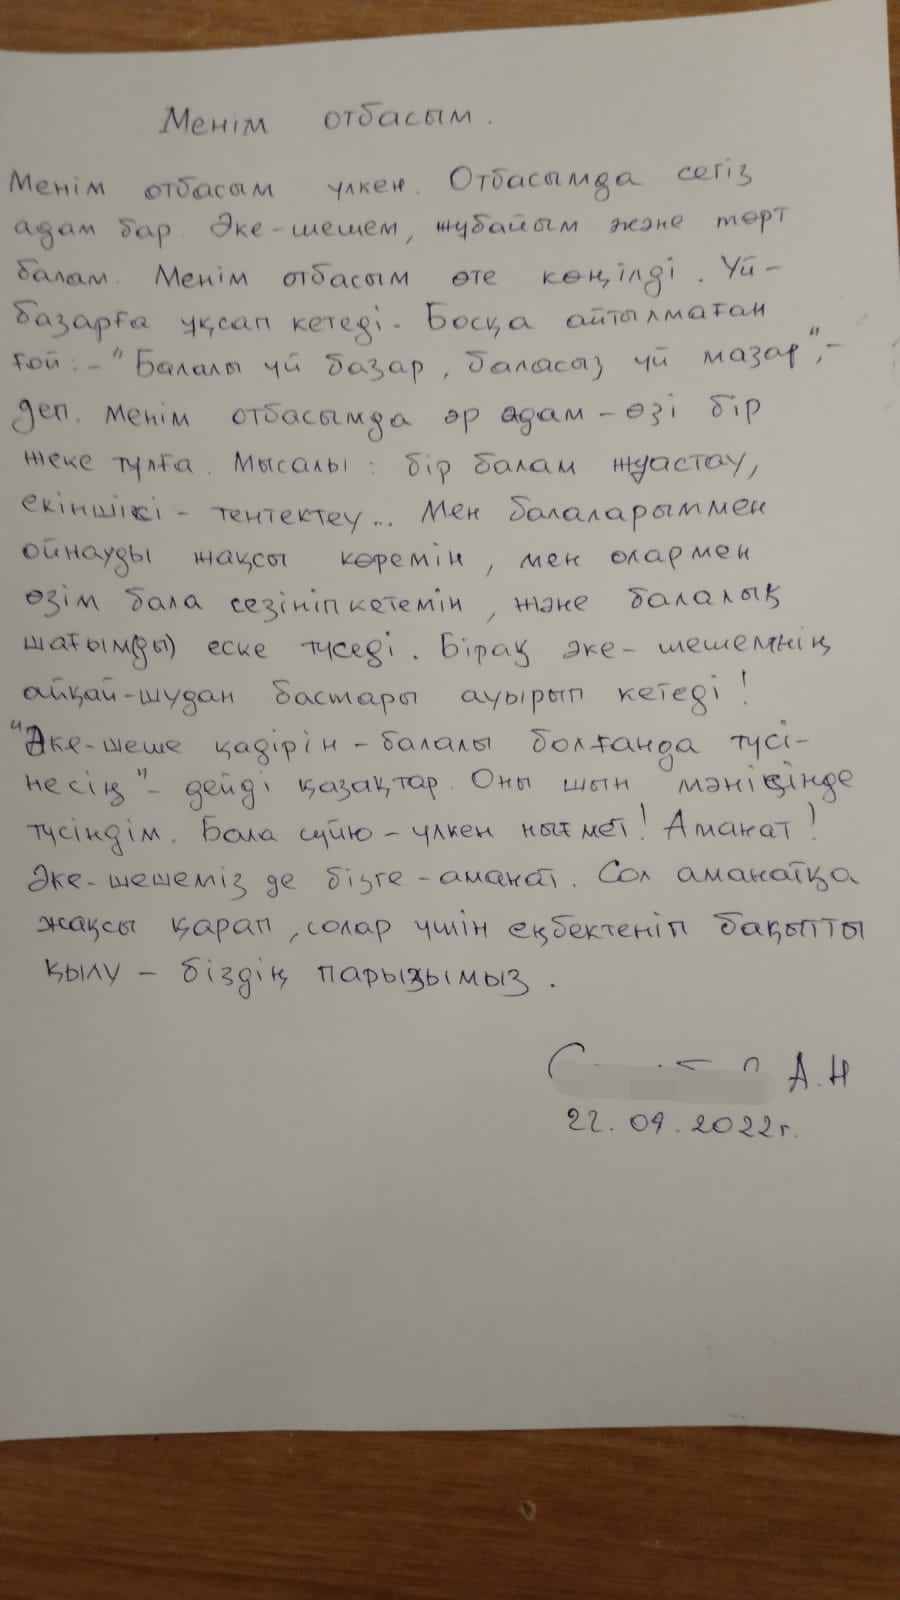 Менім отбасым.
Менім отбасым үлкен. Отбасымда сегіз
адам бар. Әке-шешем, жұбайым және төрт
балам. Менім отбасым өте көңілді. Үй-
базарға ұқсап кетеді. Босқа айтылмаған
ғой: - "Балалы үй базар, баласыз үй мазар", -
деп. Менім отбасымда әр адам - өзі бір
жеке тұлға. Мысалы: бір балам жуастау,
екіншісі - тентектеу... Мен балаларыммен
ойнауды жақсы көремін, мен олармен
өзім бала сезініп кетемін, және балалық
шағым(ды) еске түседі. Бірақ әке-шешемнің
айқай-шудан бастары ауырып кетеді!
"Әке-шеше қадірін - балалы болғанда түсі-
несің" - дейді қазақтар. Оны шын мәнісінде
түсіндім. Бала сүйю - үлкен нығмет! Аманат!
Әке-шешеміз де бізге - аманат. Сол аманатқа
жақсы қарап, солар үшін еңбектеніп бақытты
қылу - біздің парызымыз.
А.Н
22.09.2022г.